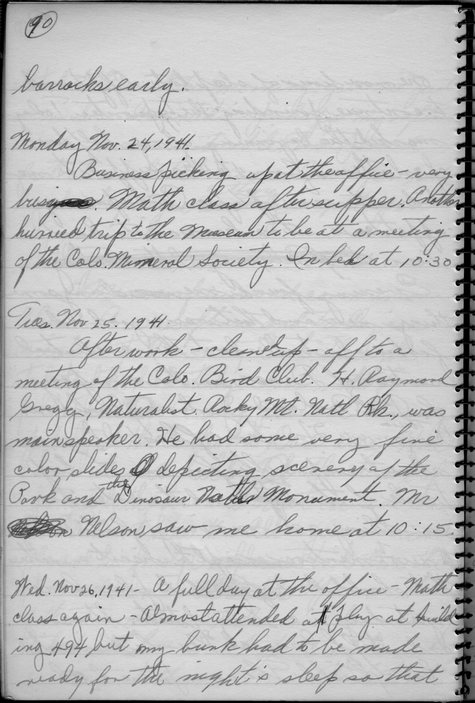 90
barracks early.
Monday Nov. 24, 1941.
Business picking up at the office - very
busy. Math class after supper. Another
hurried trip to the Museum to be at a meeting
of the Colo. Mineral Society. In bed at 10:30
Tues. Nov 25. 1941
After work - cleaned up - off to a
meeting of the Colo. Bird Club. H. Raymond
Gregg, Naturalist, Rocky Mt. Natl Pk., was
main speaker. He had some very fine
color slides depicting scenery of the
Park and the Dinosaur Natl Monument. Mr
Nelson saw me home at 10:15.
Wed. Nov 26, 1941 - A full day at the office - Math
class again - almost attended a play at build
ing 494 but my bunk had to be made
ready for the night's sleep so that